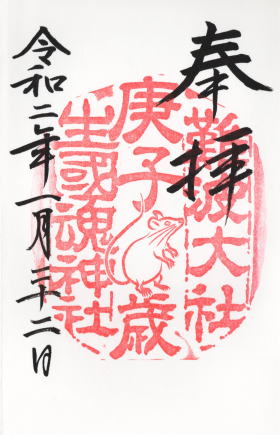 奉拝
難波大社
庚子歳
生國魂神社
令和二年一月二十二日